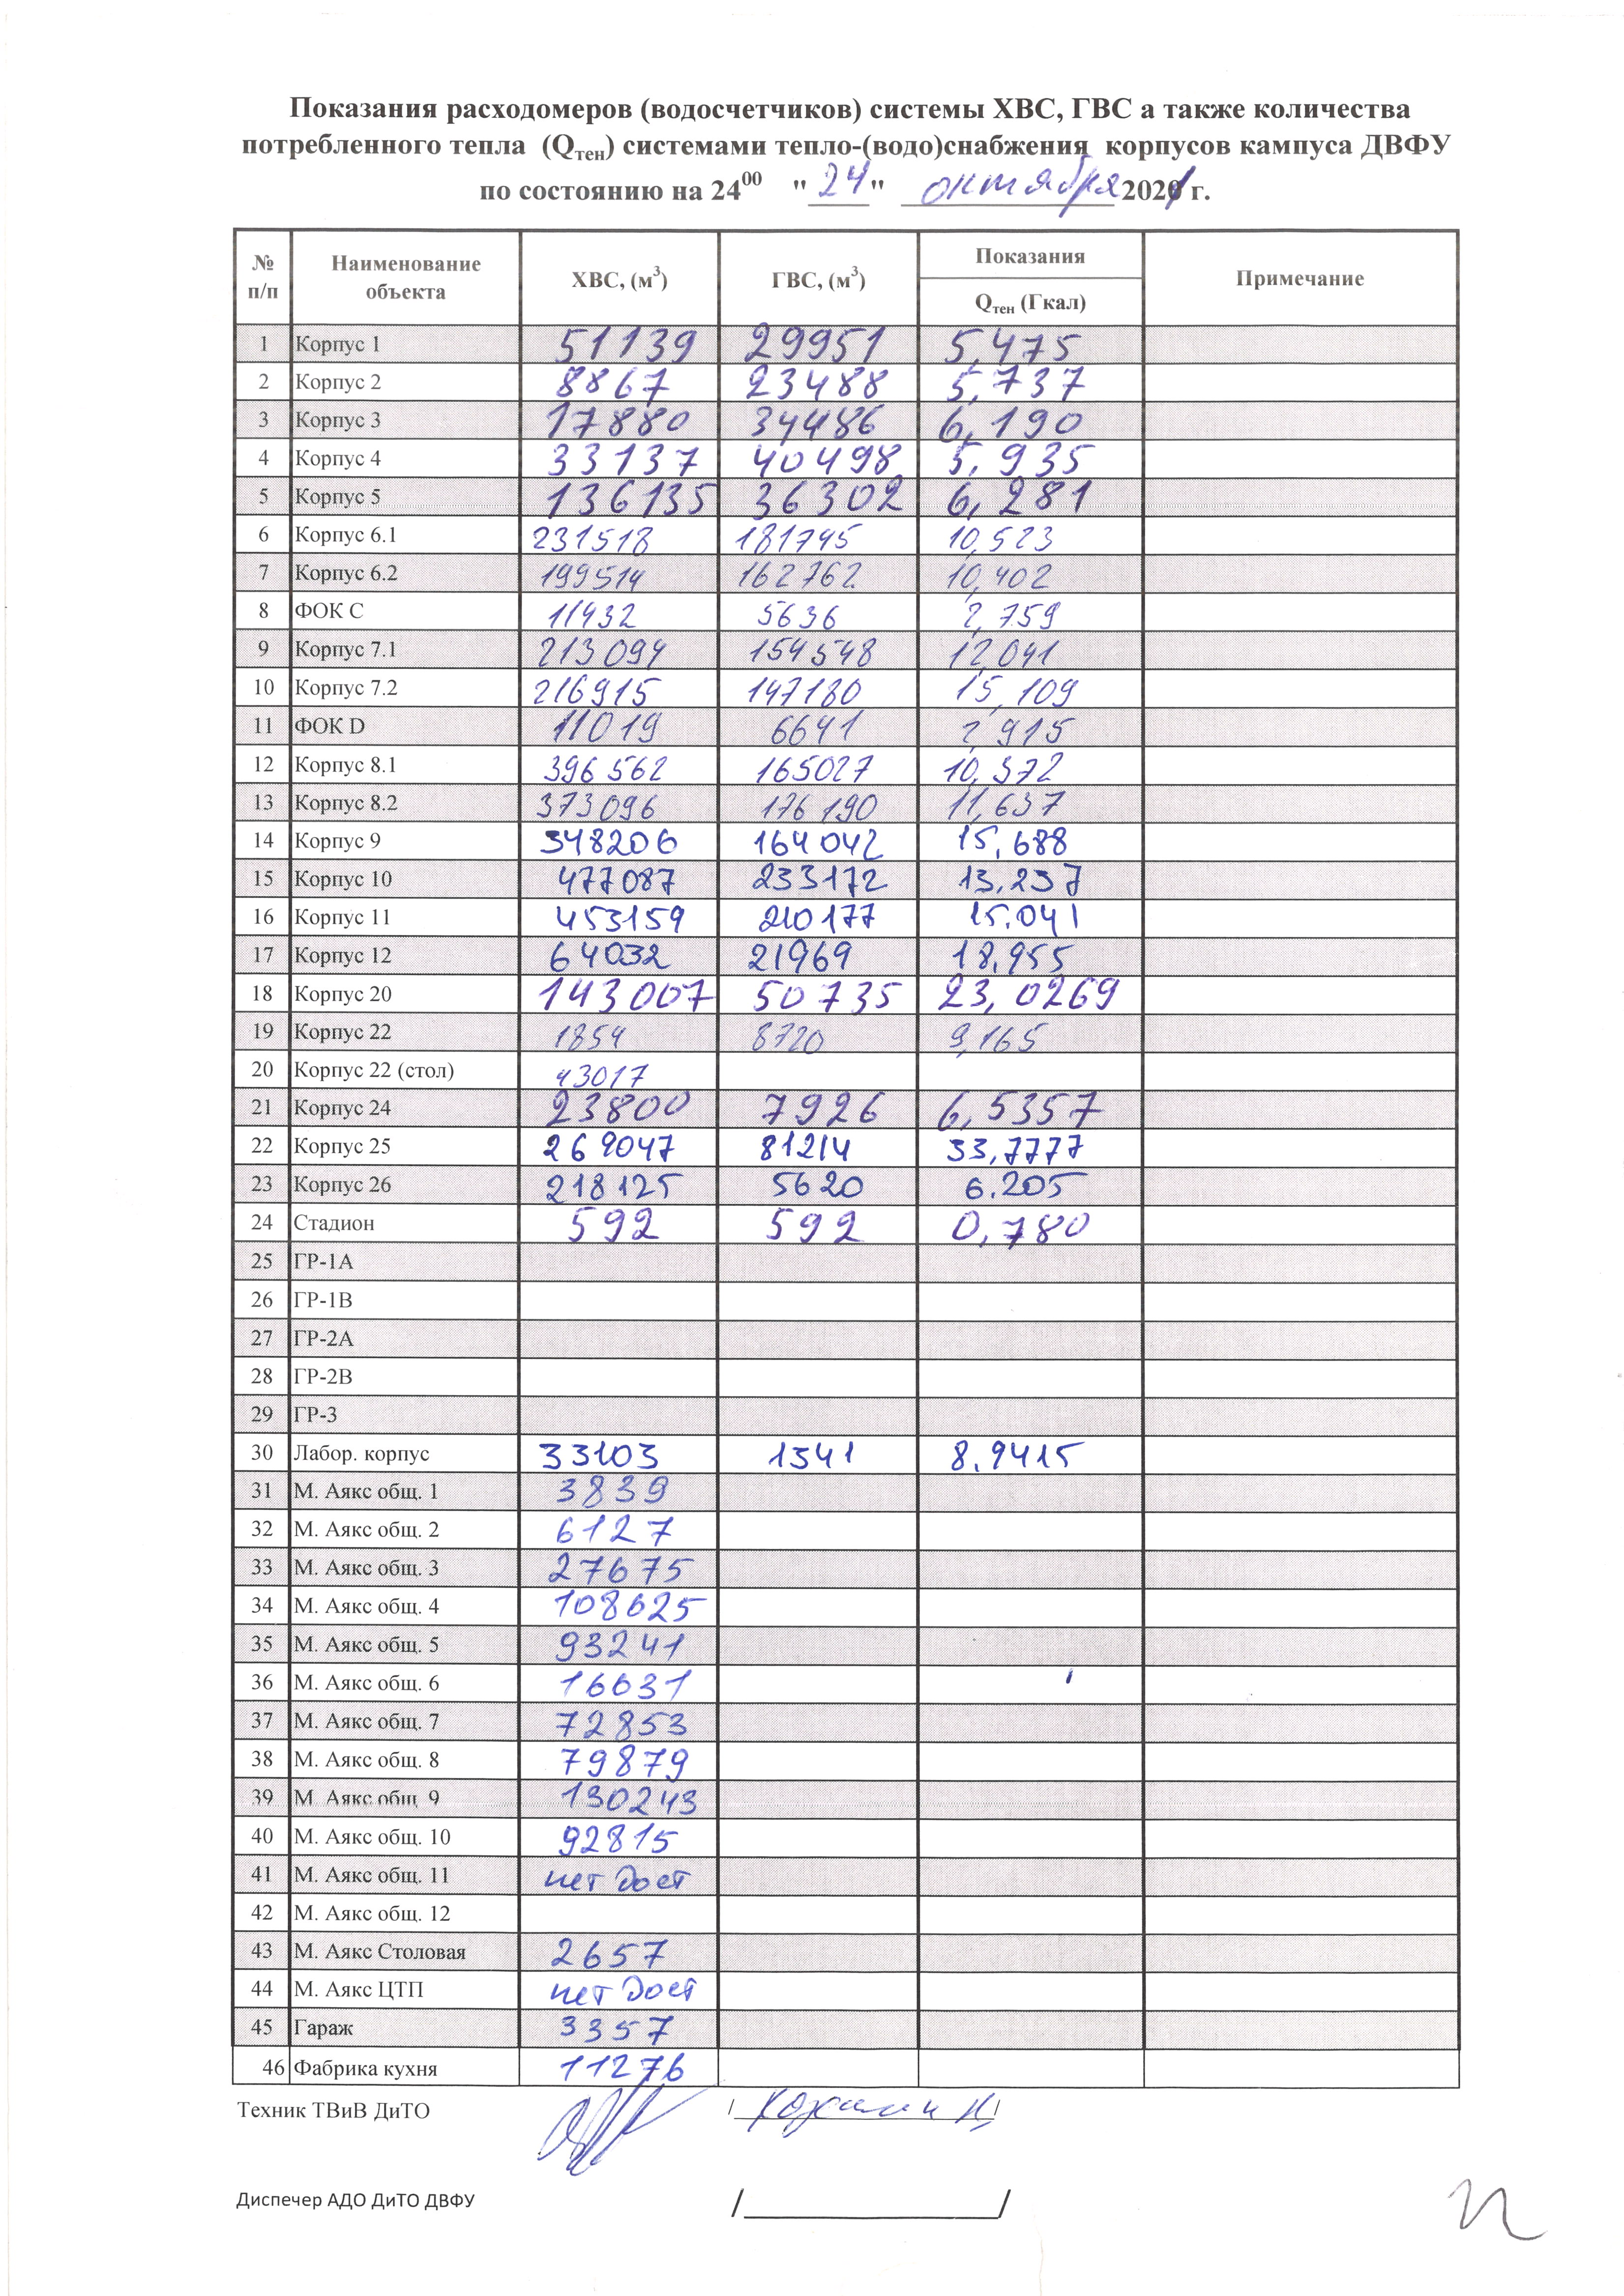 Показания расходомеров (водосчетчиков) системы ХВС, ГВС а также количества
потребленного тепла (Qтен) системами тепло-(водо)снабжения корпусов кампуса ДВФУ
по состоянию на 24⁰⁰ "24" октября 2021 г.
№ п/п Наименование объекта ХВС, (м³) ГВС, (м³) Показания Qтен (Гкал) Примечание
1 Корпус 1 51139 29951 5,475
2 Корпус 2 8867 23488 5,737
3 Корпус 3 17880 34486 6,190
4 Корпус 4 33137 40498 5,935
5 Корпус 5 136135 36302 6,281
6 Корпус 6.1 231518 181745 10,523
7 Корпус 6.2 199514 162762 10,402
8 ФОК С 11432 5636 2,759
9 Корпус 7.1 213094 154548 12,041
10 Корпус 7.2 216915 147180 15,109
11 ФОК D 11019 6641 2,915
12 Корпус 8.1 396562 165027 10,372
13 Корпус 8.2 373096 176190 11,637
14 Корпус 9 348206 164042 15,688
15 Корпус 10 477087 233172 13,237
16 Корпус 11 453159 210177 15.041
17 Корпус 12 64032 21969 18,955
18 Корпус 20 143007 50735 23,0269
19 Корпус 22 1854 8720 9,165
20 Корпус 22 (стол) 43017
21 Корпус 24 23800 7926 6,5357
22 Корпус 25 269047 81214 33,7777
23 Корпус 26 218125 5620 6.205
24 Стадион 592 592 0,780
25 ГР-1А
26 ГР-1В
27 ГР-2А
28 ГР-2В
29 ГР-3
30 Лабор. корпус 33103 1341 8.9415
31 М. Аякс общ. 1 3839
32 М. Аякс общ. 2 6127
33 М. Аякс общ. 3 27675
34 М. Аякс общ. 4 108625
35 М. Аякс общ. 5 93241
36 М. Аякс общ. 6 16631
37 М. Аякс общ. 7 72853
38 М. Аякс общ. 8 79879
39 М. Аякс общ. 9 130243
40 М. Аякс общ. 10 92815
41 М. Аякс общ. 11 нет Дост
42 М. Аякс общ. 12
43 М. Аякс Столовая 2657
44 М. Аякс ЦТП нет Дост
45 Гараж 3357
46 Фабрика кухня 11276
Техник ТВиВ ДиТО / /
Диспечер АДО ДиТО ДВФУ / /